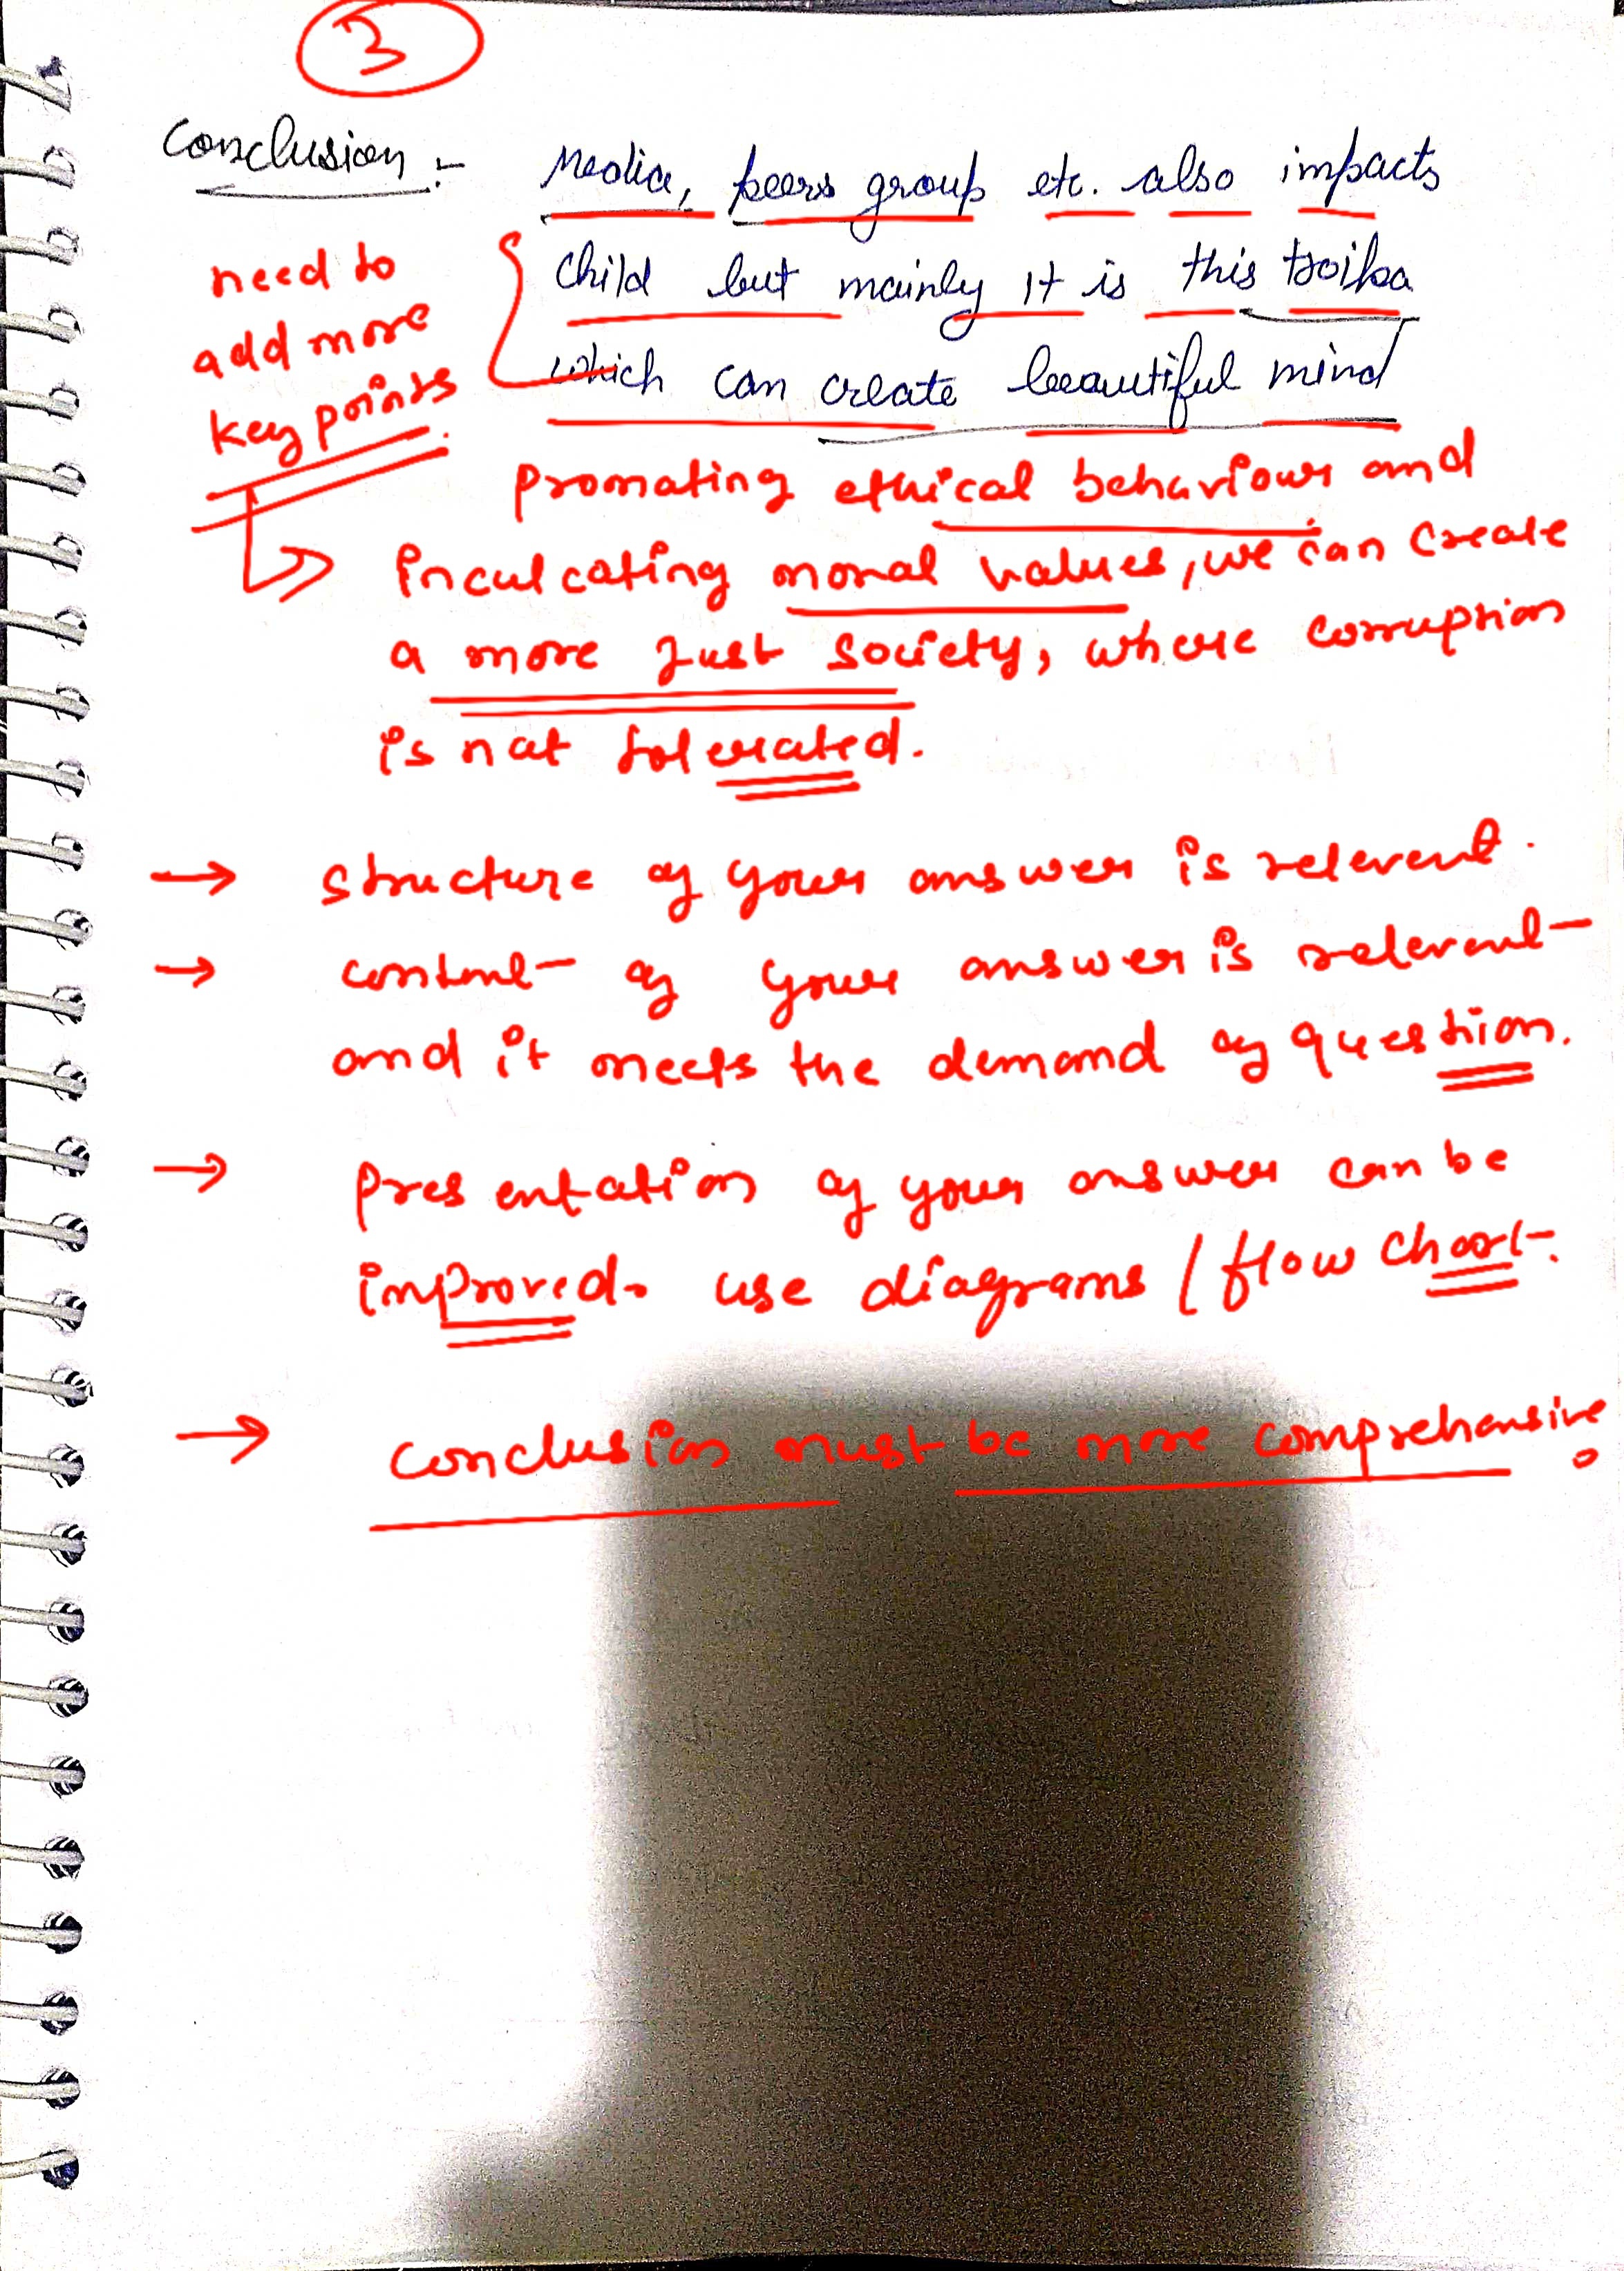 3
Conclusion :- Media, peers group etc. also impacts
child but mainly it is this troika
which can create beautiful mind
need to
add more
key points
promating ethical behaviour and
inculcating moral values, we can create
a more just society, where corruption
is not tolerated.
→ structure of your answer is relevent.
→ content of your answer is relevent
and it meets the demand of question.
→ presentation of your answer can be
improved. use diagrams / flow chart.
→ conclusion must be more comprehensive.